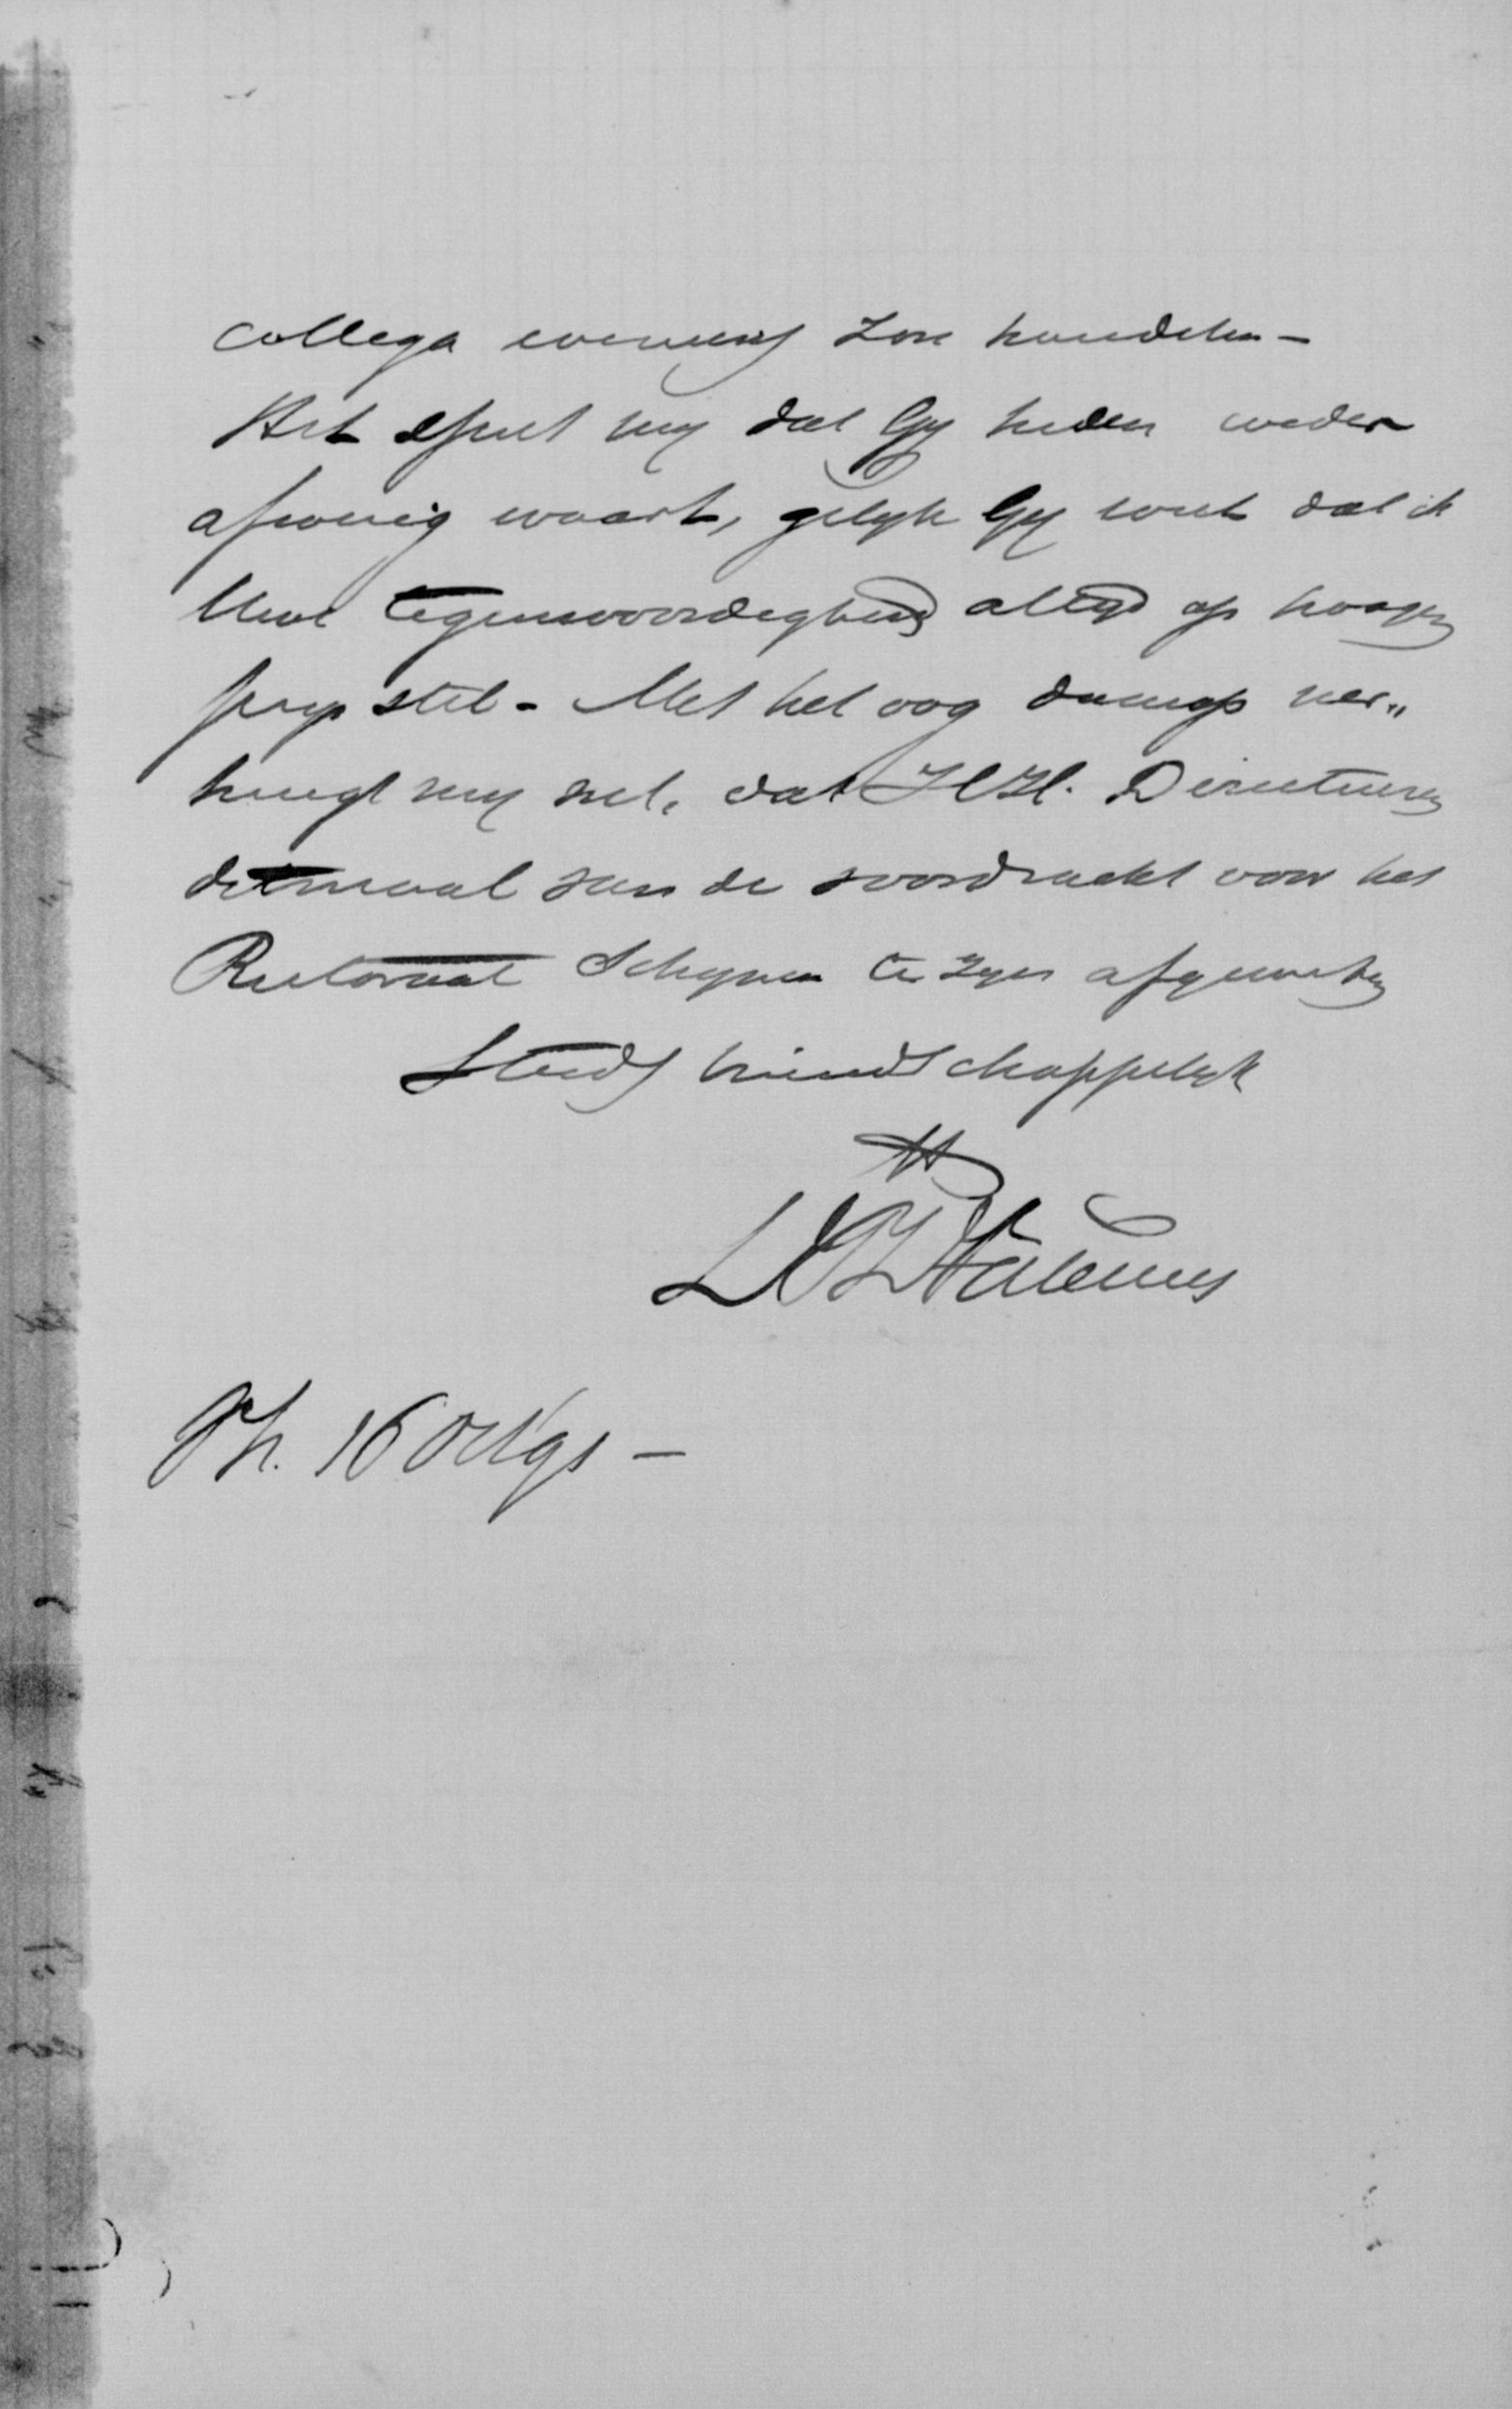 collega eveneens zou handelen –
Het speet my dat Gy heden weder
afwezig waart, gelyk Gy weet dat ik
Uwe tegenwoordigheid altyd op hoogen
prys stel – Met het oog daarop ver„
heugt my het, dat HH. Directeuren
ditmaal van de voordracht voor het
Rectoraat schynen te zyn afgeweken
Steeds vriendschappelyk
16 Oct 91 –